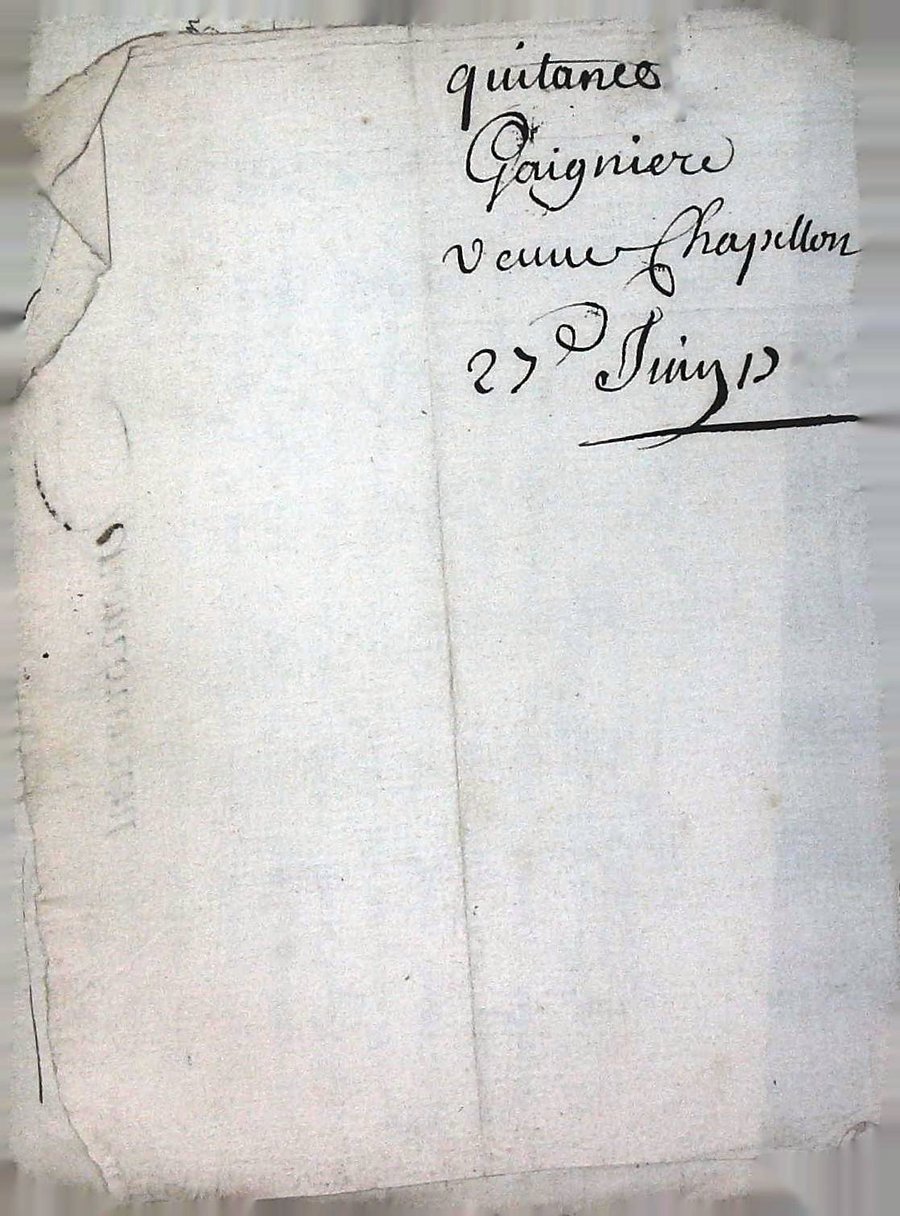 quitance
Gaigniere
veuue Chapellon
27e Juin 17